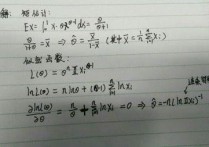 解: 矩估计:
EX = ∫₀¹ x·θx^{θ-1} dx = θ/(θ+1)
θ/(1+θ) = x̄ ⇒ θ̂ = x̄/(1-x̄) (其中 x̄ = 1/n Σ_{i=1}^n x_i)
似然函数:
L(θ) = θⁿ Π x_i^{θ-1}
ln L(θ) = n lnθ + (θ-1) Σ_{i=1}^n ln x_i
∂lnL(θ)/∂θ = n/θ + Σ_{i=1}^n ln x_i = 0 ⇒ θ̂ = -n (ln Π x_i)^{-1}